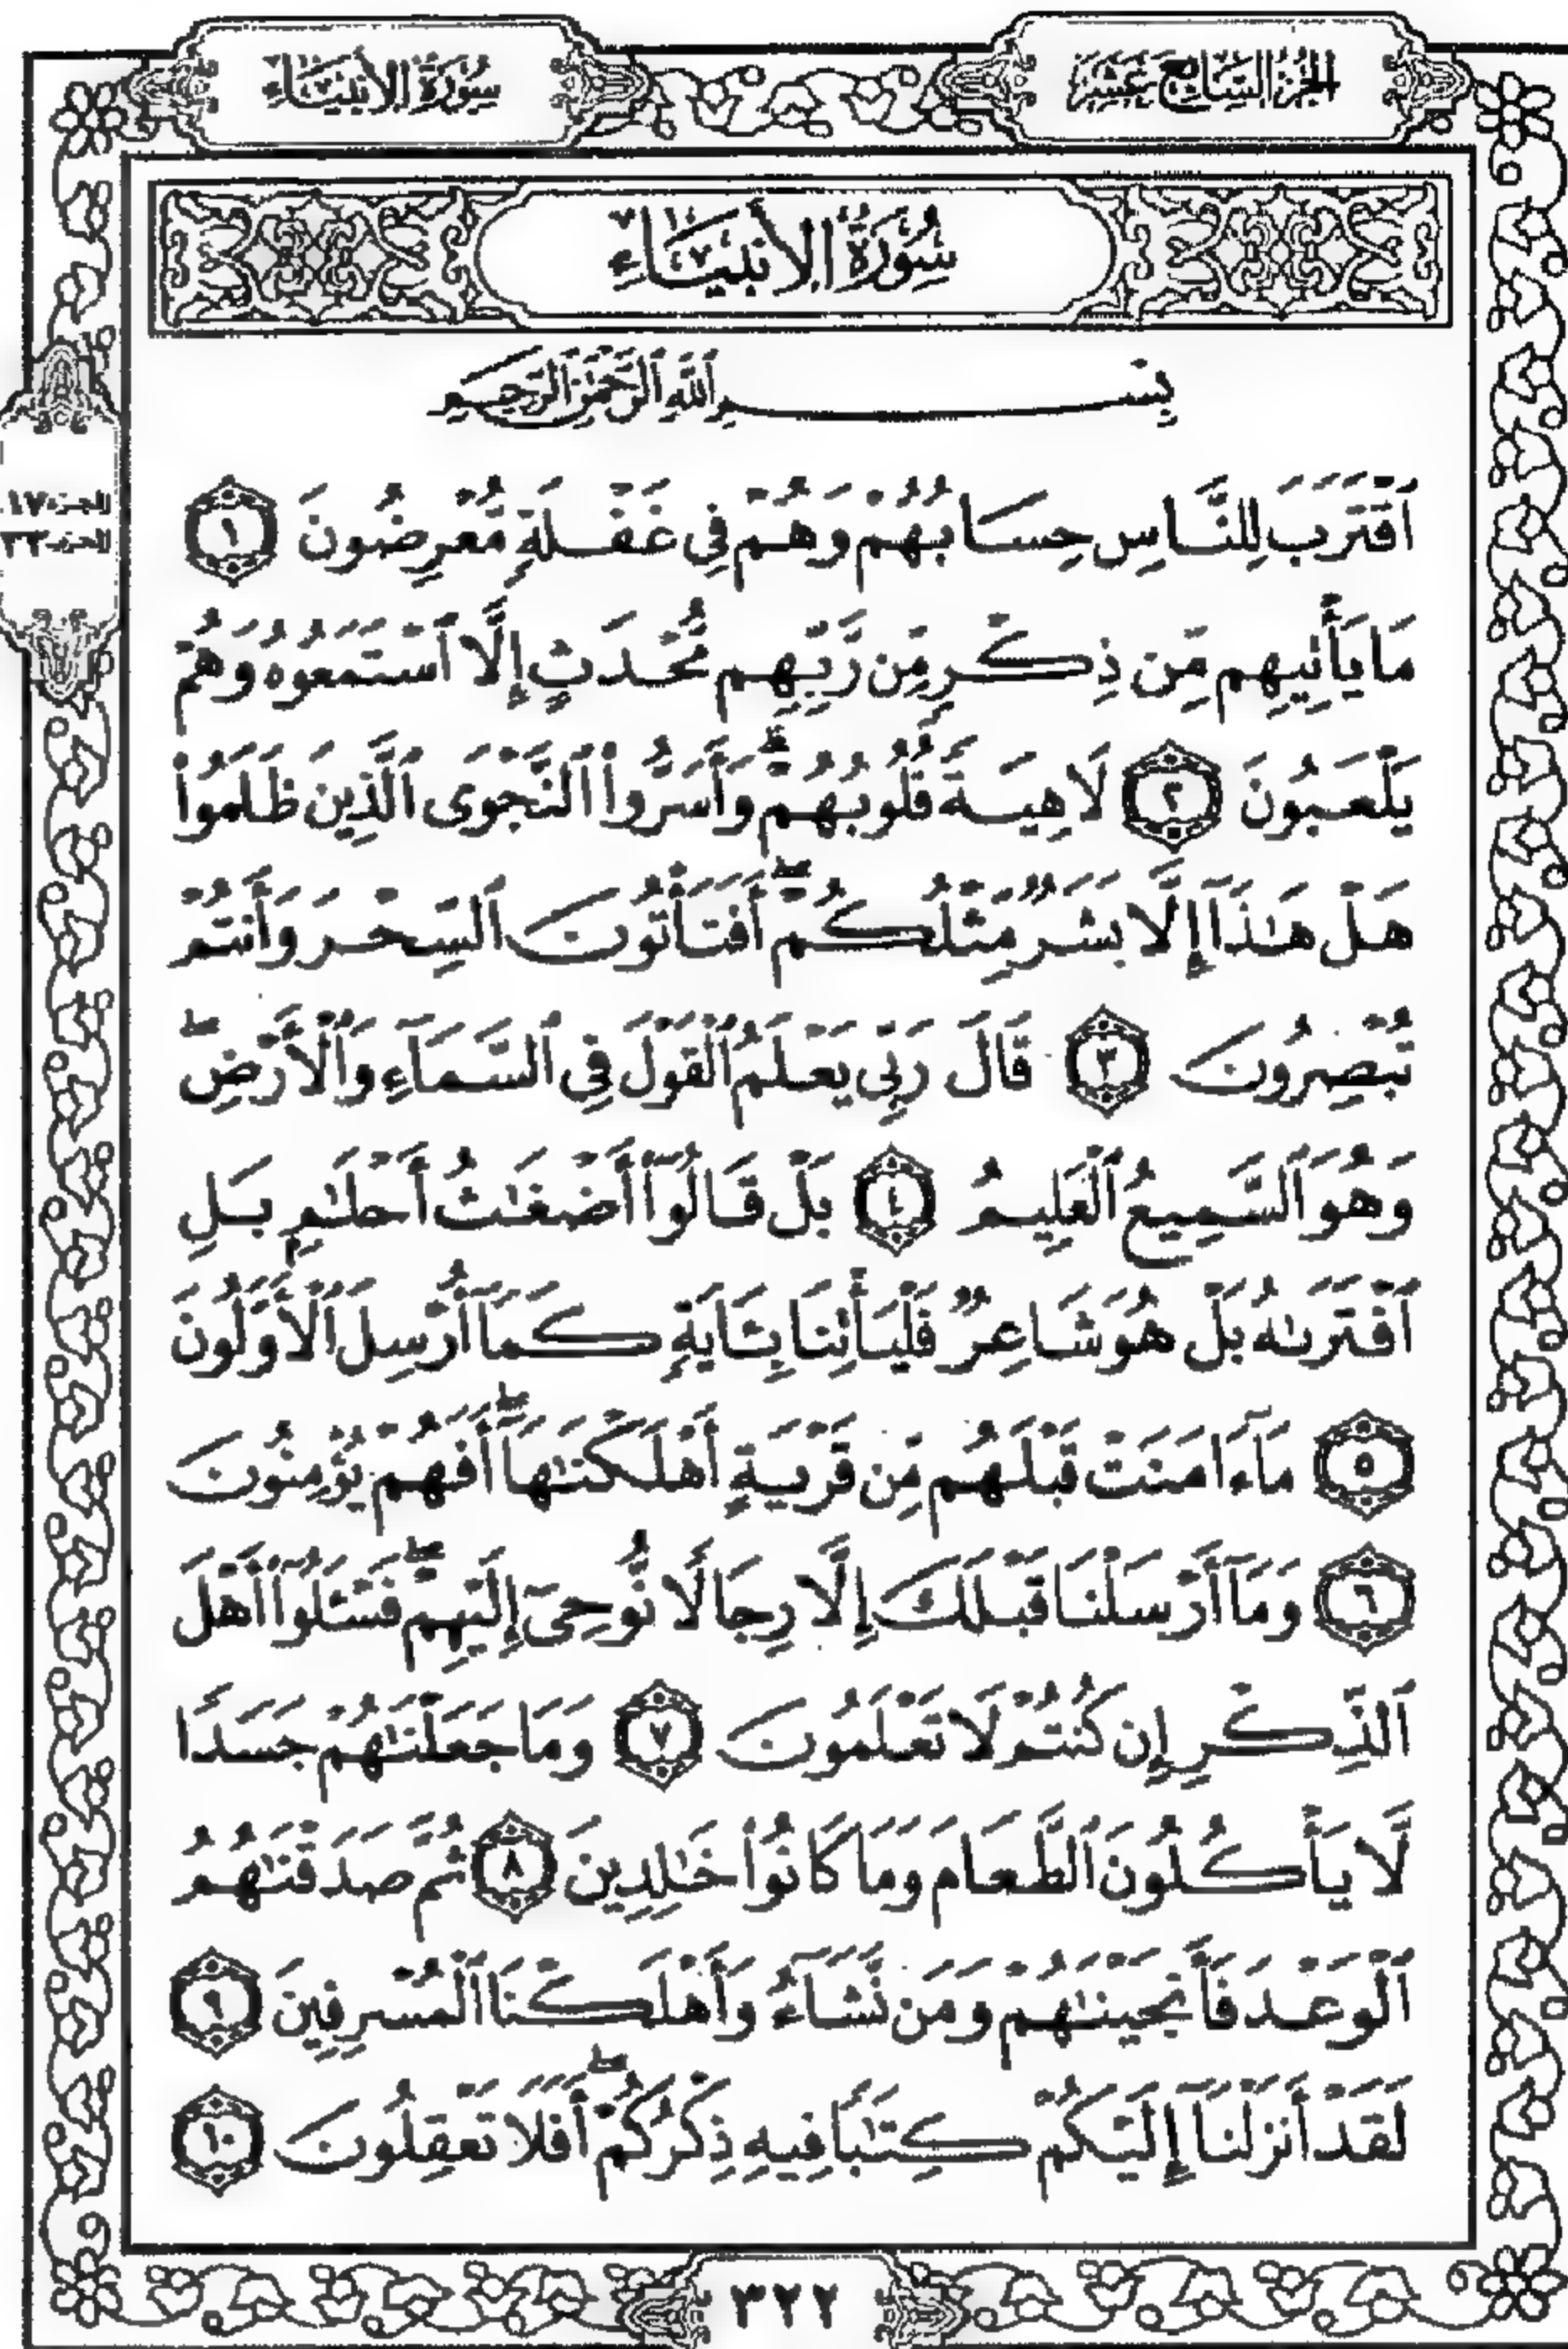 الجزء السابع عشر
سورة الأنبياء
سُورَةُ الأَنبِيَاءِ
بِسْمِ ٱللَّهِ ٱلرَّحْمَٰنِ ٱلرَّحِيمِ
ٱقْتَرَبَ لِلنَّاسِ حِسَابُهُمْ وَهُمْ فِي غَفْلَةٍ مُّعْرِضُونَ ١
مَا يَأْتِيهِم مِّن ذِكْرٍ مِّن رَّبِّهِم مُّحْدَثٍ إِلَّا ٱسْتَمَعُوهُ وَهُمْ
يَلْعَبُونَ ٢ لَاهِيَةً قُلُوبُهُمْ ۗ وَأَسَرُّوا۟ ٱلنَّجْوَى ٱلَّذِينَ ظَلَمُوا۟
هَلْ هَٰذَآ إِلَّا بَشَرٌ مِّثْلُكُمْ ۖ أَفَتَأْتُونَ ٱلسِّحْرَ وَأَنتُمْ
تُبْصِرُونَ ٣ قَالَ رَبِّي يَعْلَمُ ٱلْقَوْلَ فِي ٱلسَّمَآءِ وَٱلْأَرْضِ ۖ
وَهُوَ ٱلسَّمِيعُ ٱلْعَلِيمُ ٤ بَلْ قَالُوٓا۟ أَضْغَٰثُ أَحْلَٰمٍ بَلِ
ٱفْتَرَىٰهُ بَلْ هُوَ شَاعِرٌ فَلْيَأْتِنَا بِـَٔايَةٍ كَمَآ أُرْسِلَ ٱلْأَوَّلُونَ
٥ مَآ ءَامَنَتْ قَبْلَهُم مِّن قَرْيَةٍ أَهْلَكْنَٰهَآ ۖ أَفَهُمْ يُؤْمِنُونَ
٦ وَمَآ أَرْسَلْنَا قَبْلَكَ إِلَّا رِجَالًا نُّوحِىٓ إِلَيْهِمْ ۖ فَسْـَٔلُوٓا۟ أَهْلَ
ٱلذِّكْرِ إِن كُنتُمْ لَا تَعْلَمُونَ ٧ وَمَا جَعَلْنَٰهُمْ جَسَدًا
لَّا يَأْكُلُونَ ٱلطَّعَامَ وَمَا كَانُوا۟ خَٰلِدِينَ ٨ ثُمَّ صَدَقْنَٰهُمُ
ٱلْوَعْدَ فَأَنجَيْنَٰهُمْ وَمَن نَّشَآءُ وَأَهْلَكْنَا ٱلْمُسْرِفِينَ ٩
لَقَدْ أَنزَلْنَآ إِلَيْكُمْ كِتَٰبًا فِيهِ ذِكْرُكُمْ ۖ أَفَلَا تَعْقِلُونَ ١٠
٣٢٢